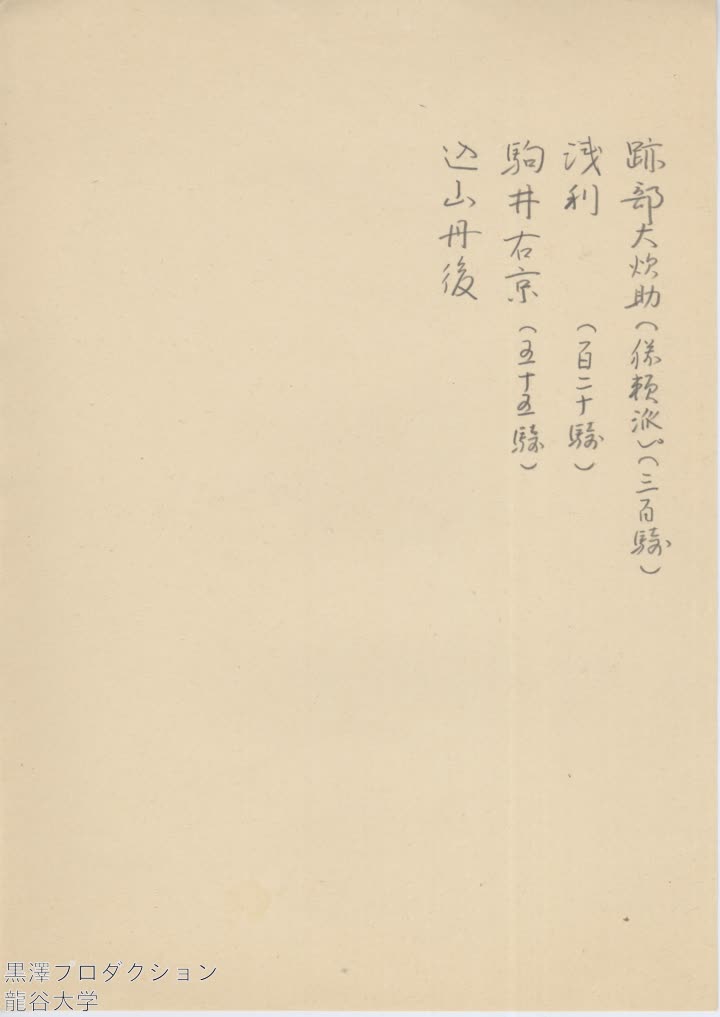 跡部大炊助(勝頼派)。(三百騎)
浅利(百二十騎)
駒井右京(五十五騎)
込山丹後
黒澤プロダクション
龍谷大学